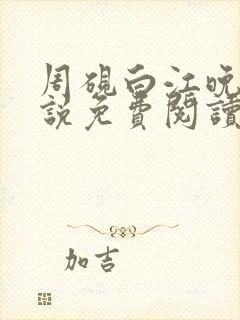 周硯白江晚
說免費閱讀
加吉